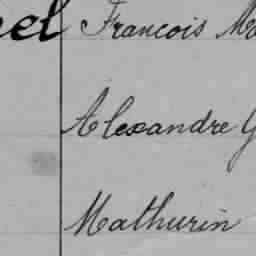 François
Alexandre
Mathurin